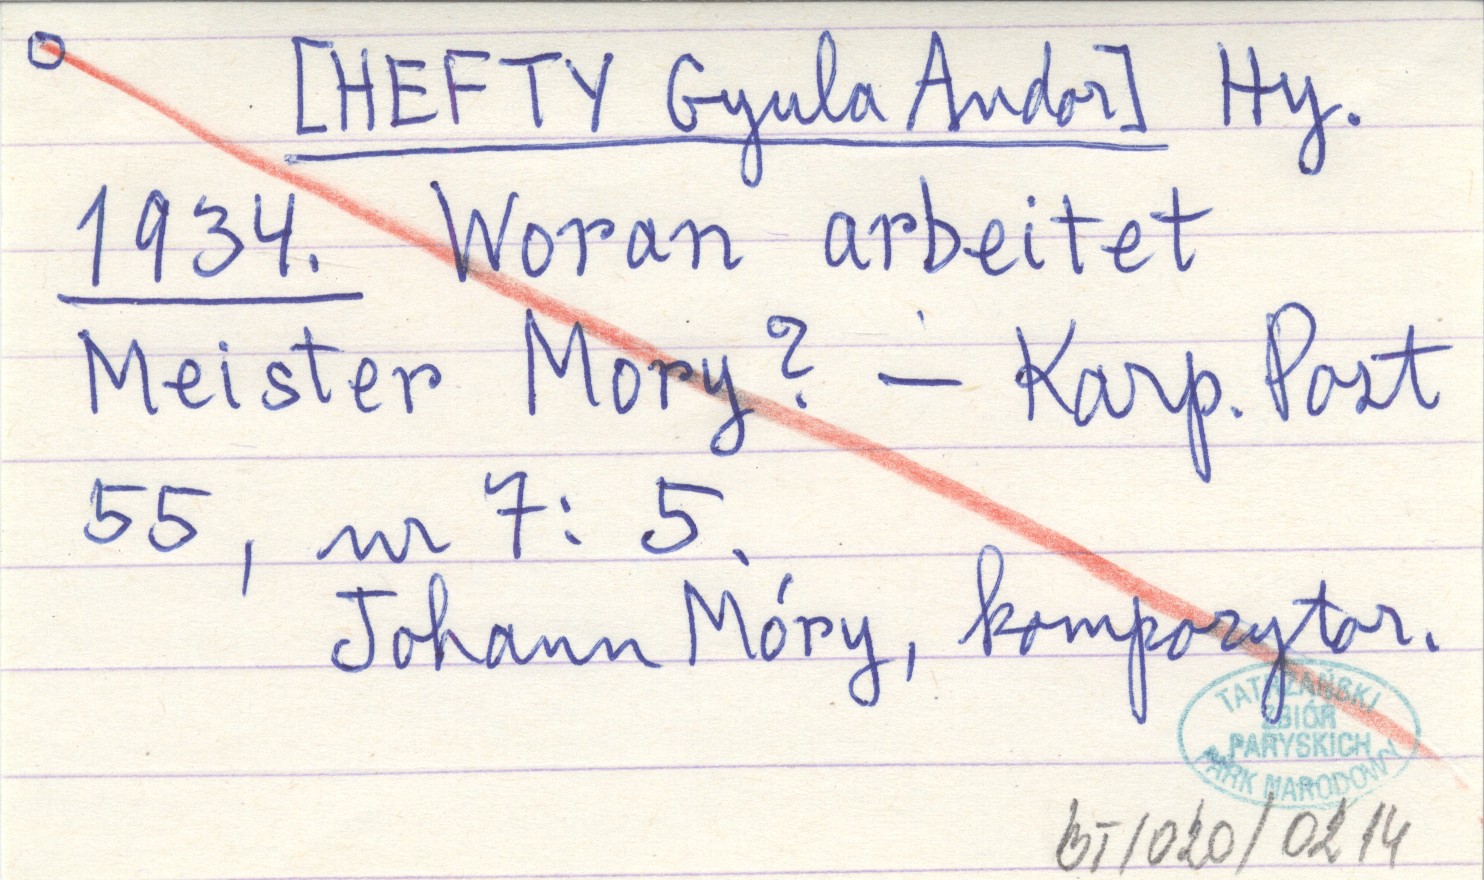 [HEFTY Gyula Andor] Hy.
1934. Woran arbeitet
Meister Mory? – Karp. Post
55, nr 7: 5.
Johann Móry, kompozytor.
TATRZAŃSKI
ZBIÓR
PARYSKICH
PARK NARODOWY
BT/020/0214